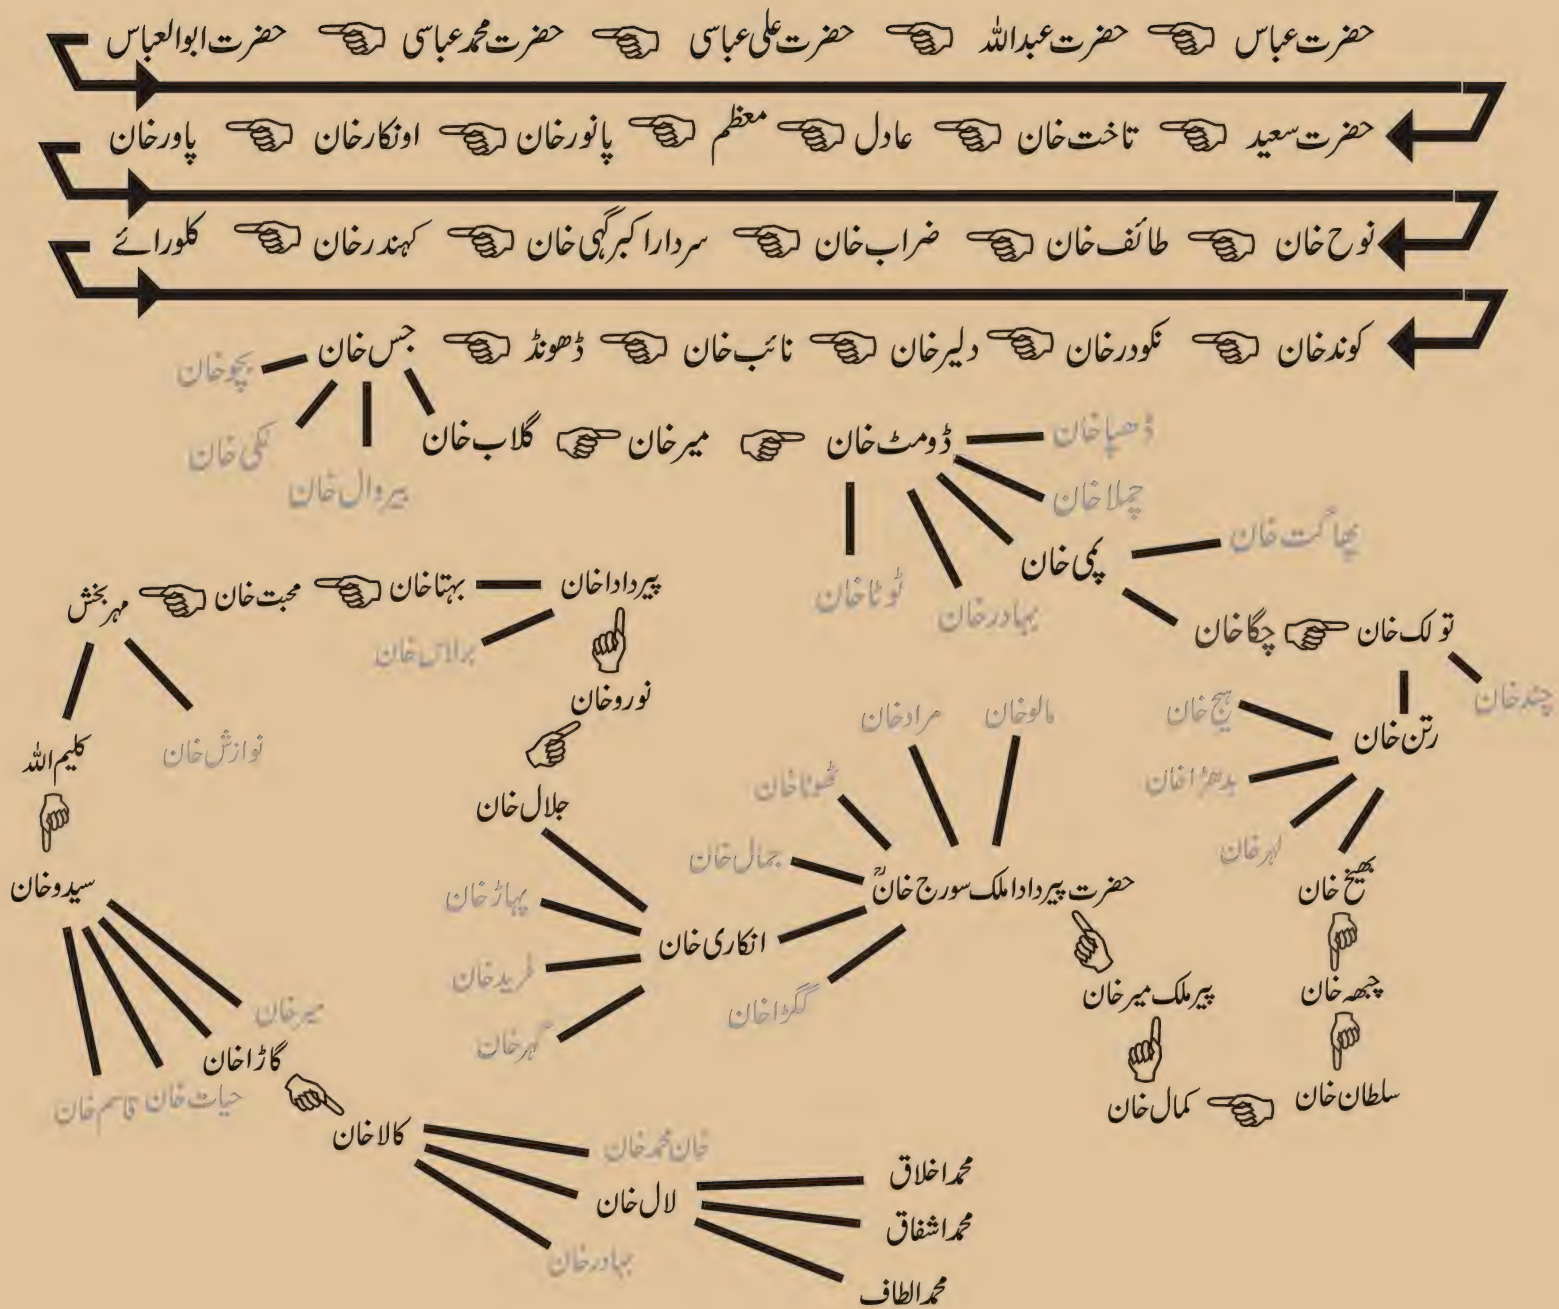 حضرت عباس حضرت عبداللہ حضرت علی عباسی حضرت محمد عباسی حضرت ابوالعباس
حضرت سعید تاخت خان عادل معظم پانور خان اونکار خان پاور خان
نوح خان طائف خان ضراب خان سردار اکبر گہی خان کہندر خان کلورائے
کوند خان نکودر خان دلیر خان نائب خان ڈھونڈ جس خان
بچو خان
لکی خان
بیروال خان
گلاب خان میر خان ڈومٹ خان
ڈھپا خان
چملا خان
پمی خان
بھاگت خان
بہادر خان
ٹوٹا خان
چگا خان تولک خان
چند خان
رتن خان
بدھڑا خان
لہر خان
بھیخ خان
چبھہ خان
سلطان خان
کمال خان
پیر ملک میر خان
حضرت پیر دادا ملک سورج خانؒ
مالو خان
مراد خان
ٹھوٹا خان
جمال خان
انکاری خان
گکڑا خان
جلال خان
پہاڑ خان
فرید خان
گہر خان
نورو خان
پیر دادا خان
بہتا خان محبت خان مہر بخش
براس خان
نوازش خان
کلیم اللہ
سیدو خان
میر خان
گاڑا خان
حیات خان
قاسم خان
کالا خان
خان محمد خان
لال خان
بہادر خان
محمد اخلاق
محمد اشفاق
محمد الطاف